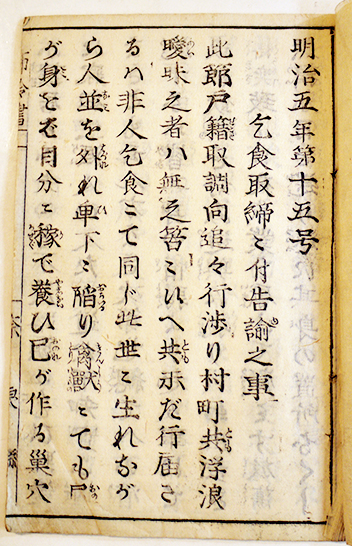 明治五年第十五号
乞食取締ニ付告諭之事
此節戸籍取調向追々行渉り村町共浮浪
曖昧之者ハ無之筈ニいへ共未だ行届さ
るハ非人乞食とて同ド此世ニ生れなが
ら人並を外れ卑下ニ陥り禽獣とても
が身を 自分ニ稼で養ひ己が作る巣穴
奈良縣